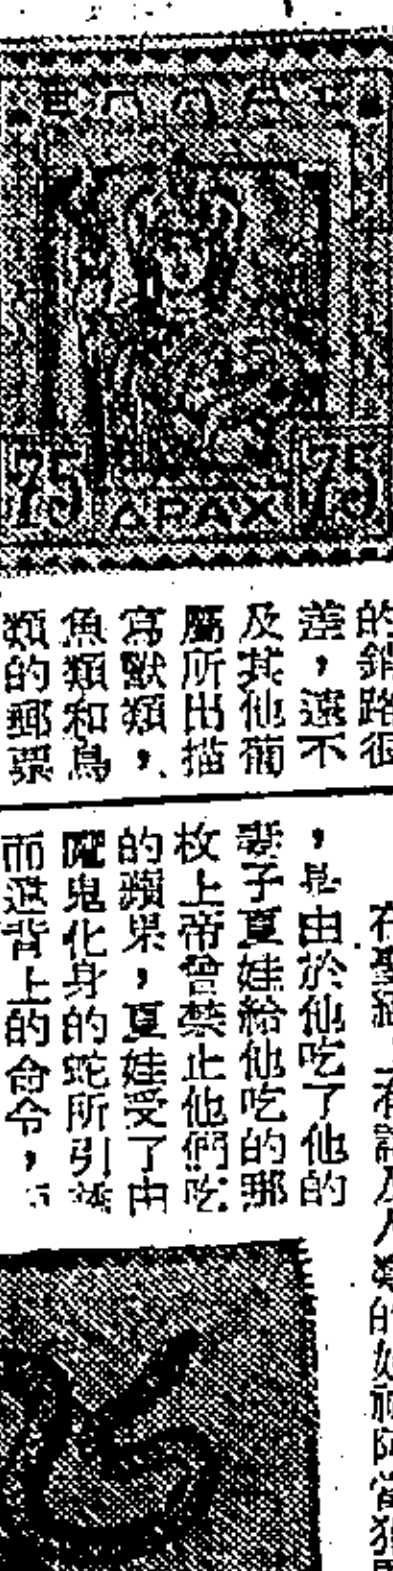 75 ΔΡΑΧ 75
的銷路很
差，遠不
及其他葡
屬所出描
寫獸類，
魚類和鳥
類的郵票
在聖經上有談及人類的始祖阿當
，是由於他吃了他的
妻子夏娃給他吃的那
枚上帝曾禁止他們吃
的蘋果，夏娃受了由
魔鬼化身的蛇所引誘
而違背上的命令，